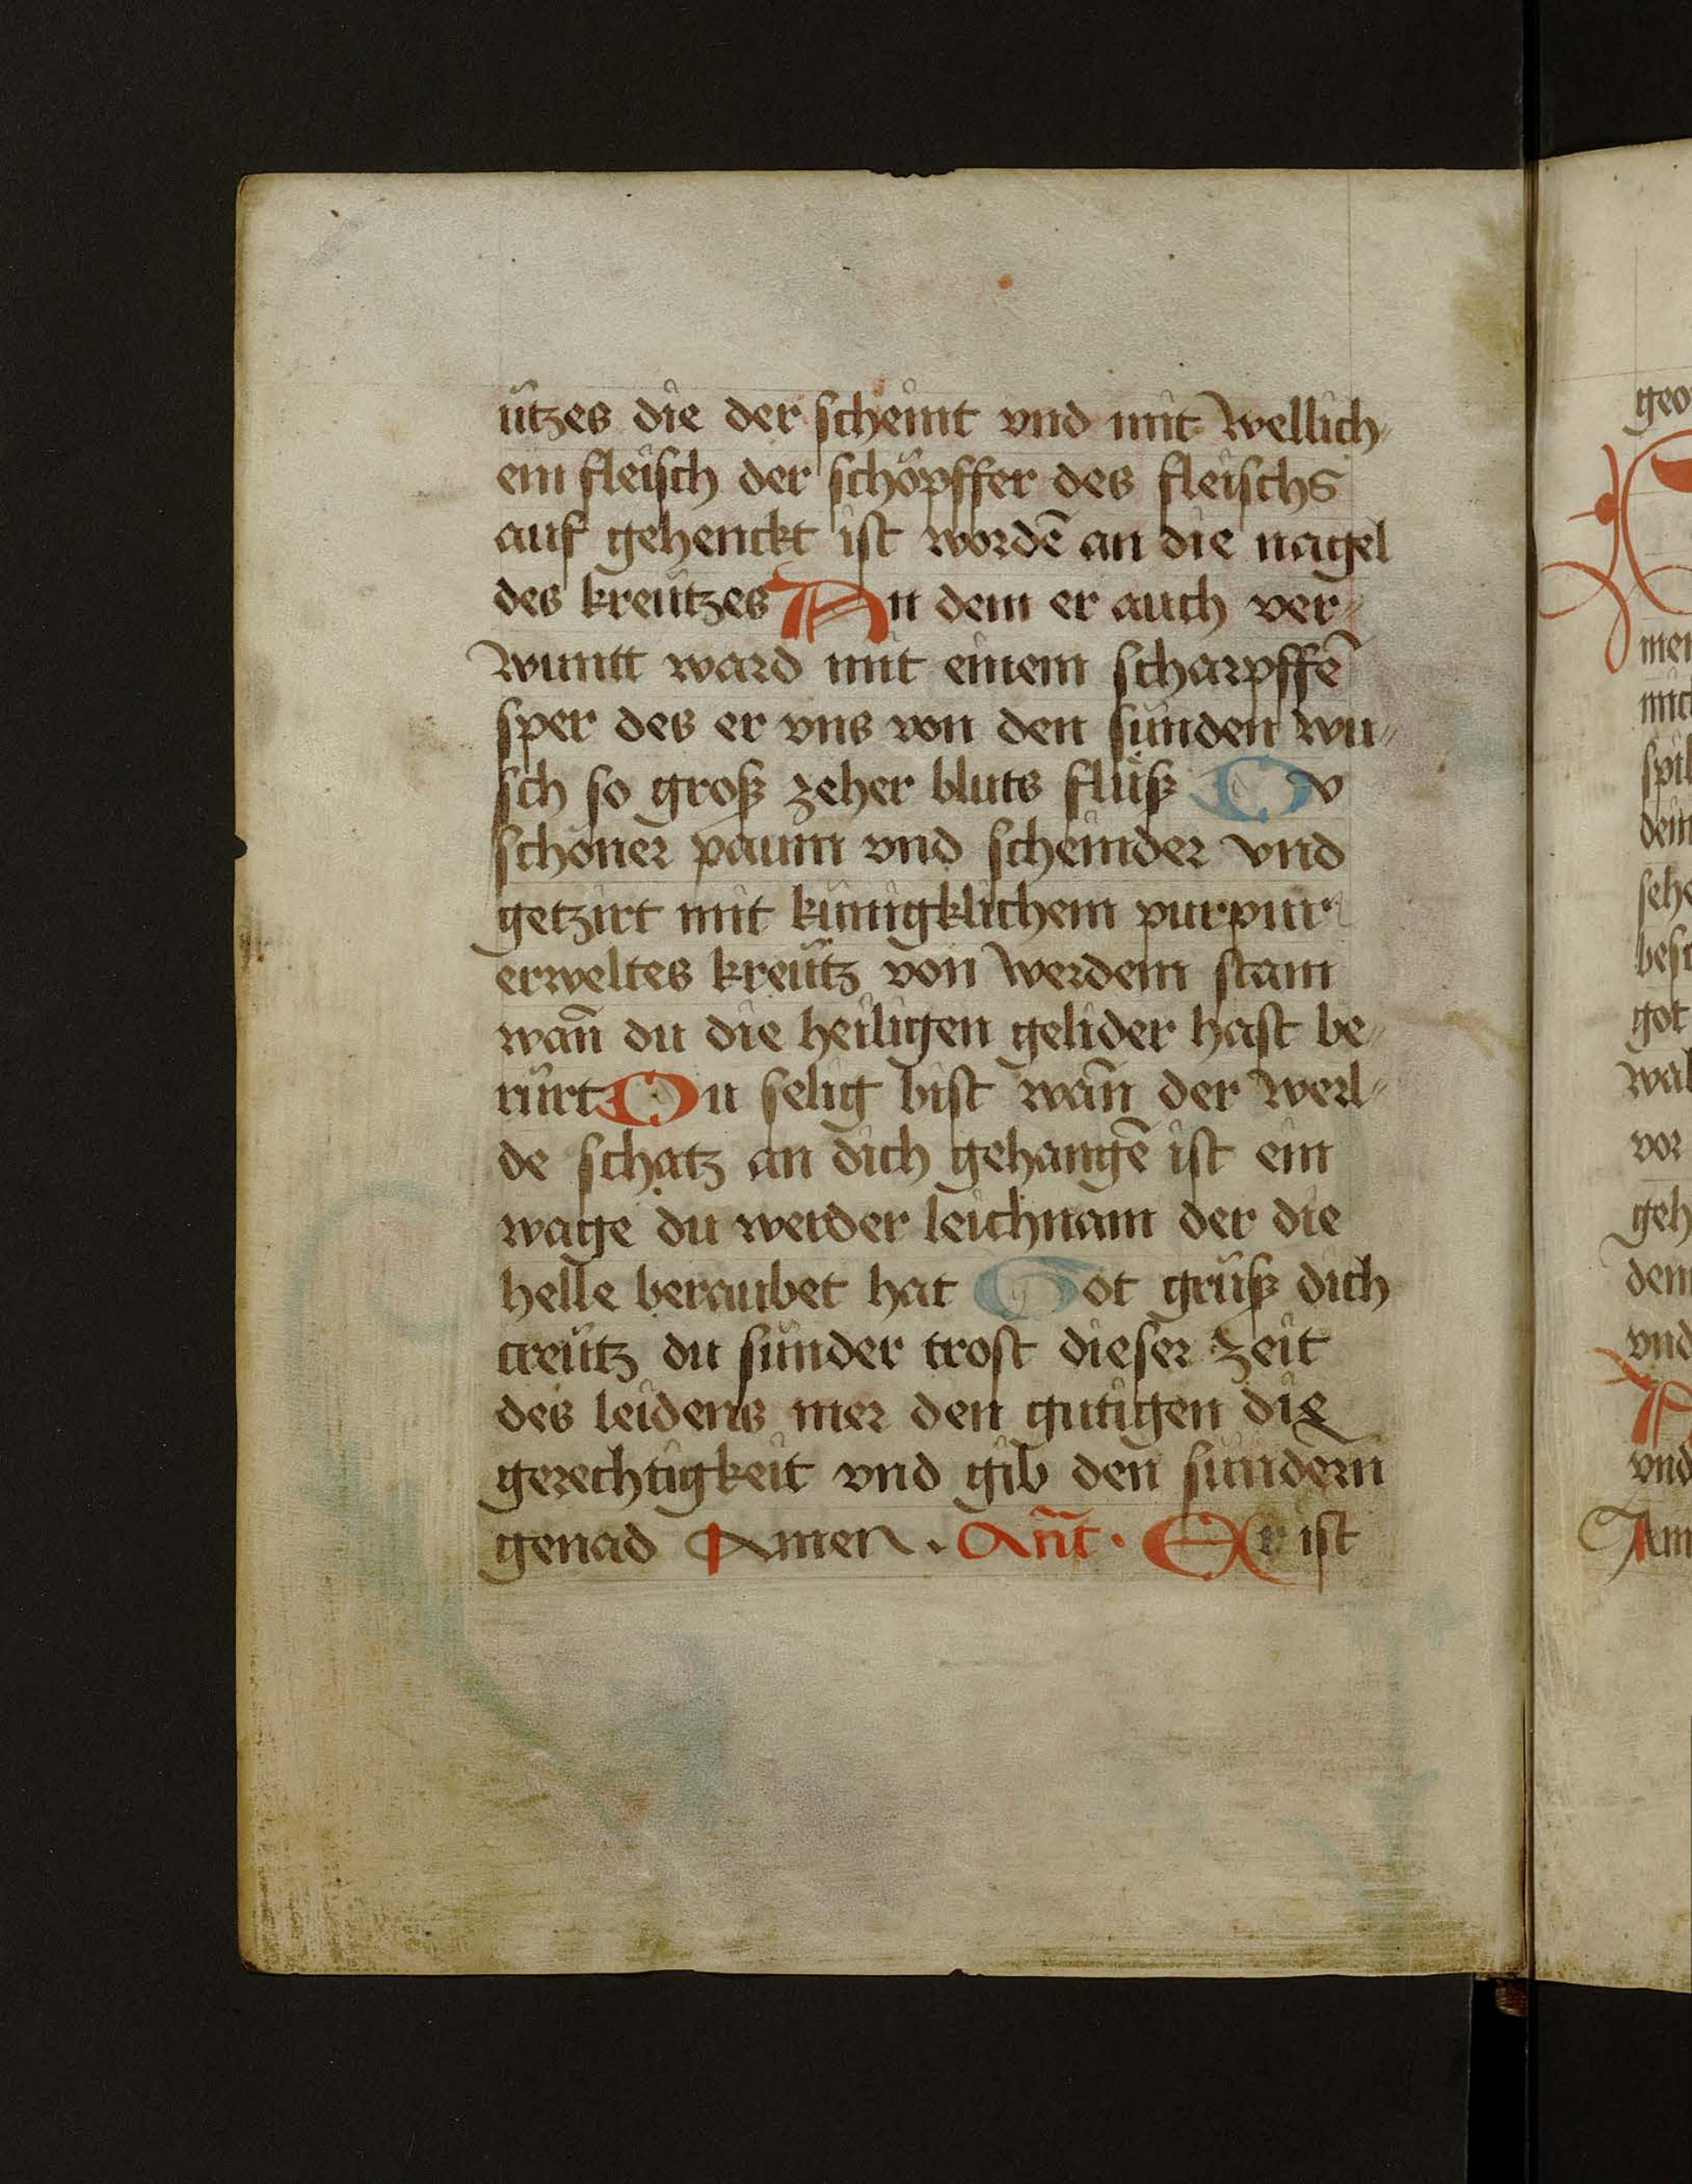 ützes die der scheint vnd mit wellich⸗
em fleisch der schöpffer des fleischs
auf gehenckt ist wordē an die nagel
des kreützes An dem er auch ver⸗
wuntt ward mit einem scharpffē
sper des er vns von den sünden wu⸗
sch so groß zeher bluts flüß Dv
schöner paum vnd scheinder vnd
getzirt mit künigklichem purpur
erweltes kreütz von werdem stam
wan̄ du die heiligen gelider hast be⸗
rürt Du selig bist wan̄ der werl⸗
de schatz an dich gehangē ist ein
wage du werder leichnam der die
helle beraubet hat Got grüß dich
creütz du sünder trost dieser zeit
des leidens mer den gutigen die
gerechtigkeit vnd gib den sündern
genad Amen . An̄t . Er ist